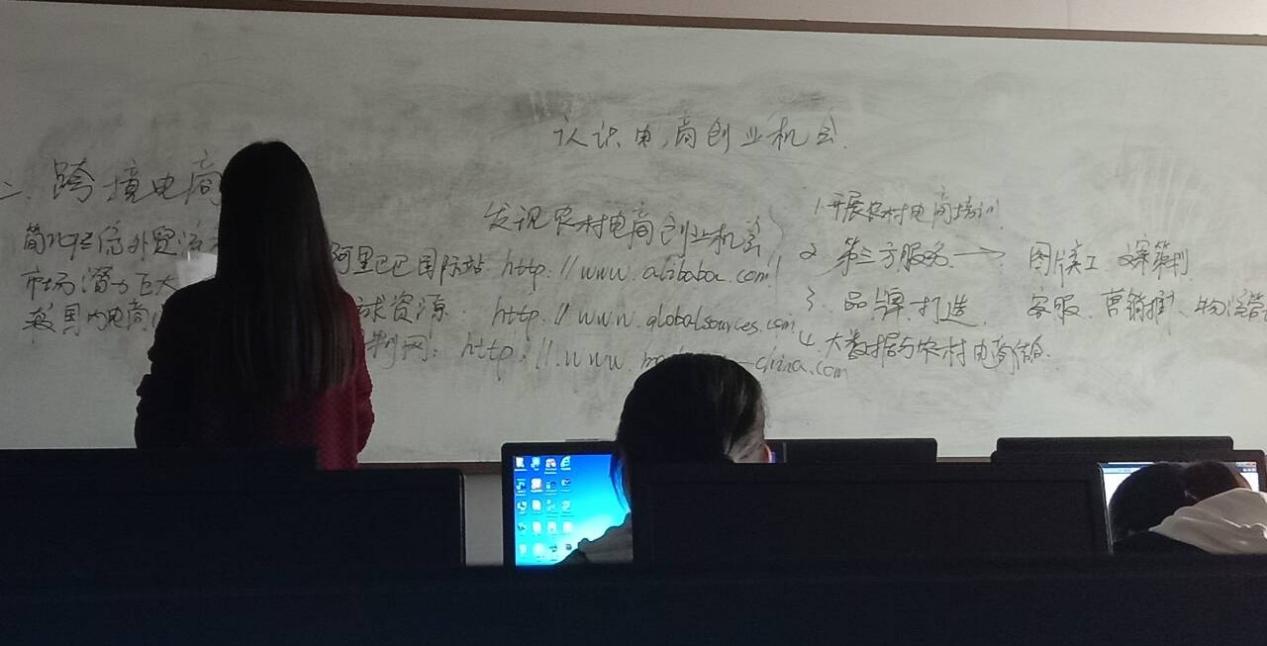 认识电商创业机会.
二、跨境电商
简化
外贸
市场潜力巨大
国内电商
发现农村电商创业机会
阿里巴巴国际站 http://www.alibaba.com/
球资源 http://www.globalsources.com
http://www.m
-china.com
1.开展农村电商培训
2 第三方服务→ 图片美工 文案策划
3. 品牌打造 客服 营销推 物流
4.大数据与农村电商